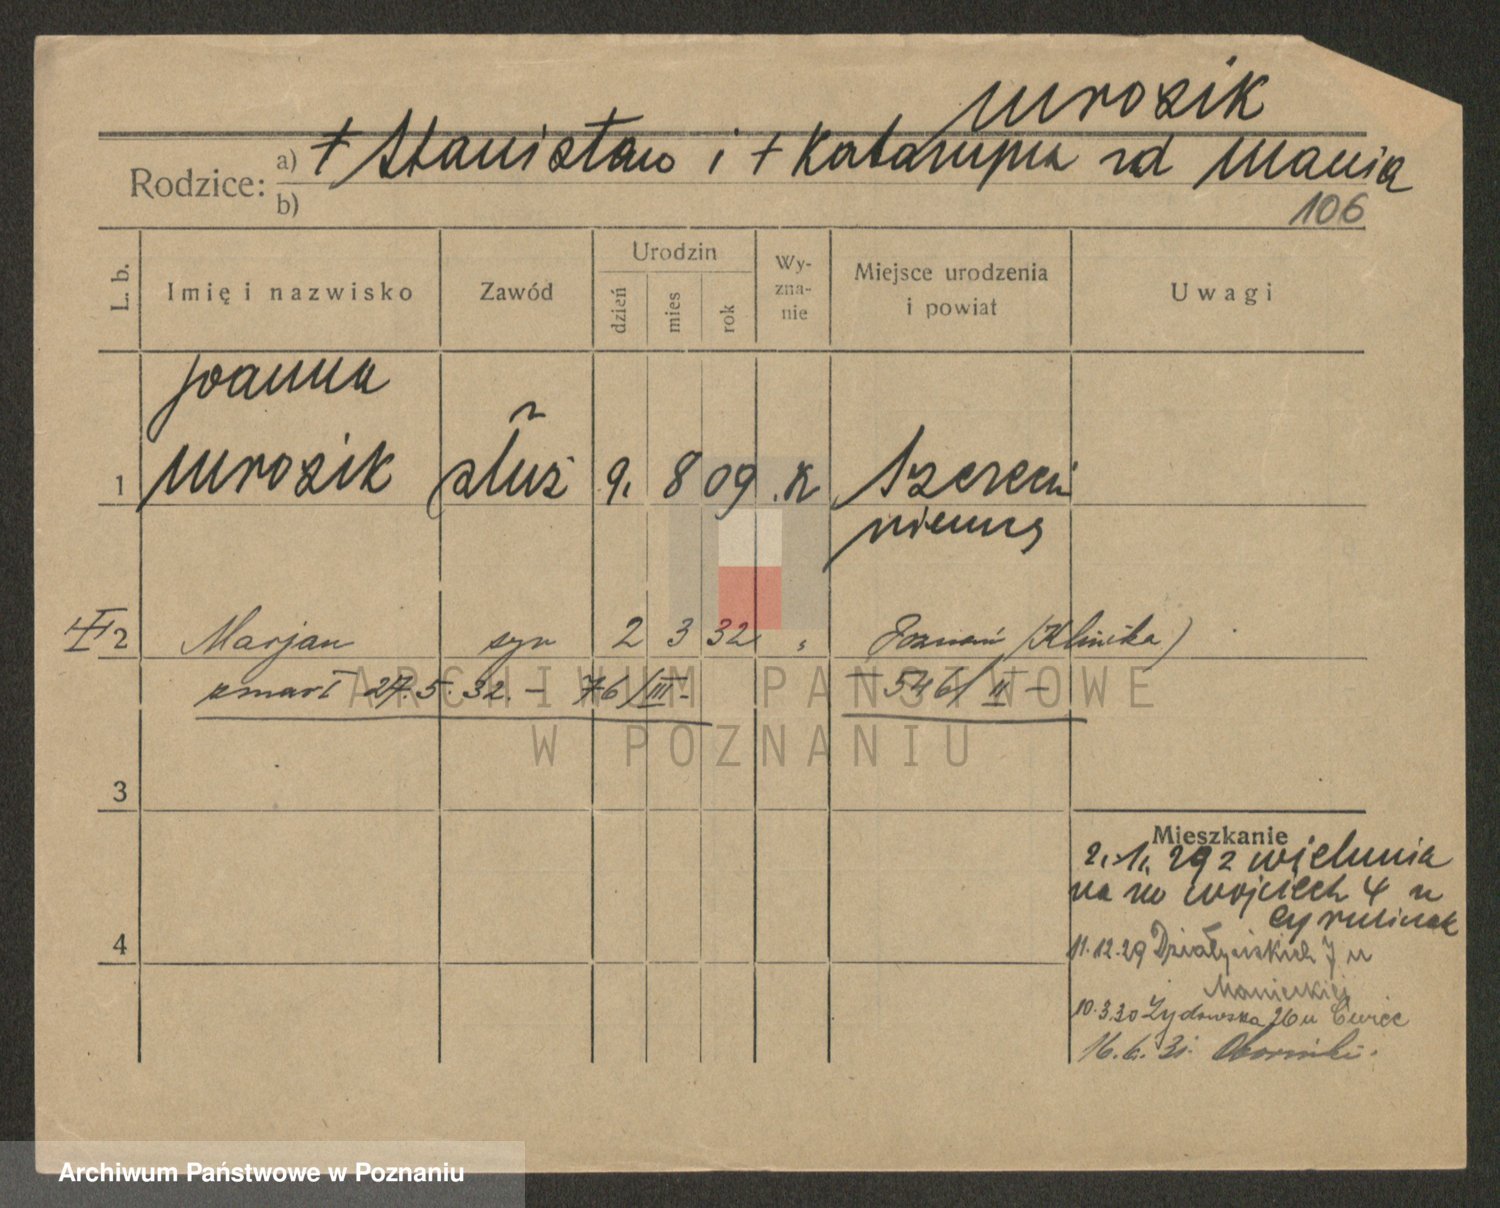 Mrozik
Rodzice: a) + Stanisław i + Katarzyna zd Mania
b)
106
L. b.
Imię i nazwisko
Zawód
Urodzin
dzień
mies
rok
Wy-
zna-
nie
Miejsce urodzenia
i powiat
Uwagi
Joanna
1 Mrozik służ 9. 8 09 K
niemcy
2 Marjan syn 2 3 32 " Poznań (Klinika)
zmarł 27.5.32. – 76/III – 546/II –
3
Mieszkanie
2.1.29 z Wielunia
na Wojciech 4 u
4
11.12.29 Działyńskich 7 u
10.3.30 Żydowska 26 u
16.6.31. Oborniki.
ARCHIWUM PAŃSTWOWE
W POZNANIU
Archiwum Państwowe w Poznaniu